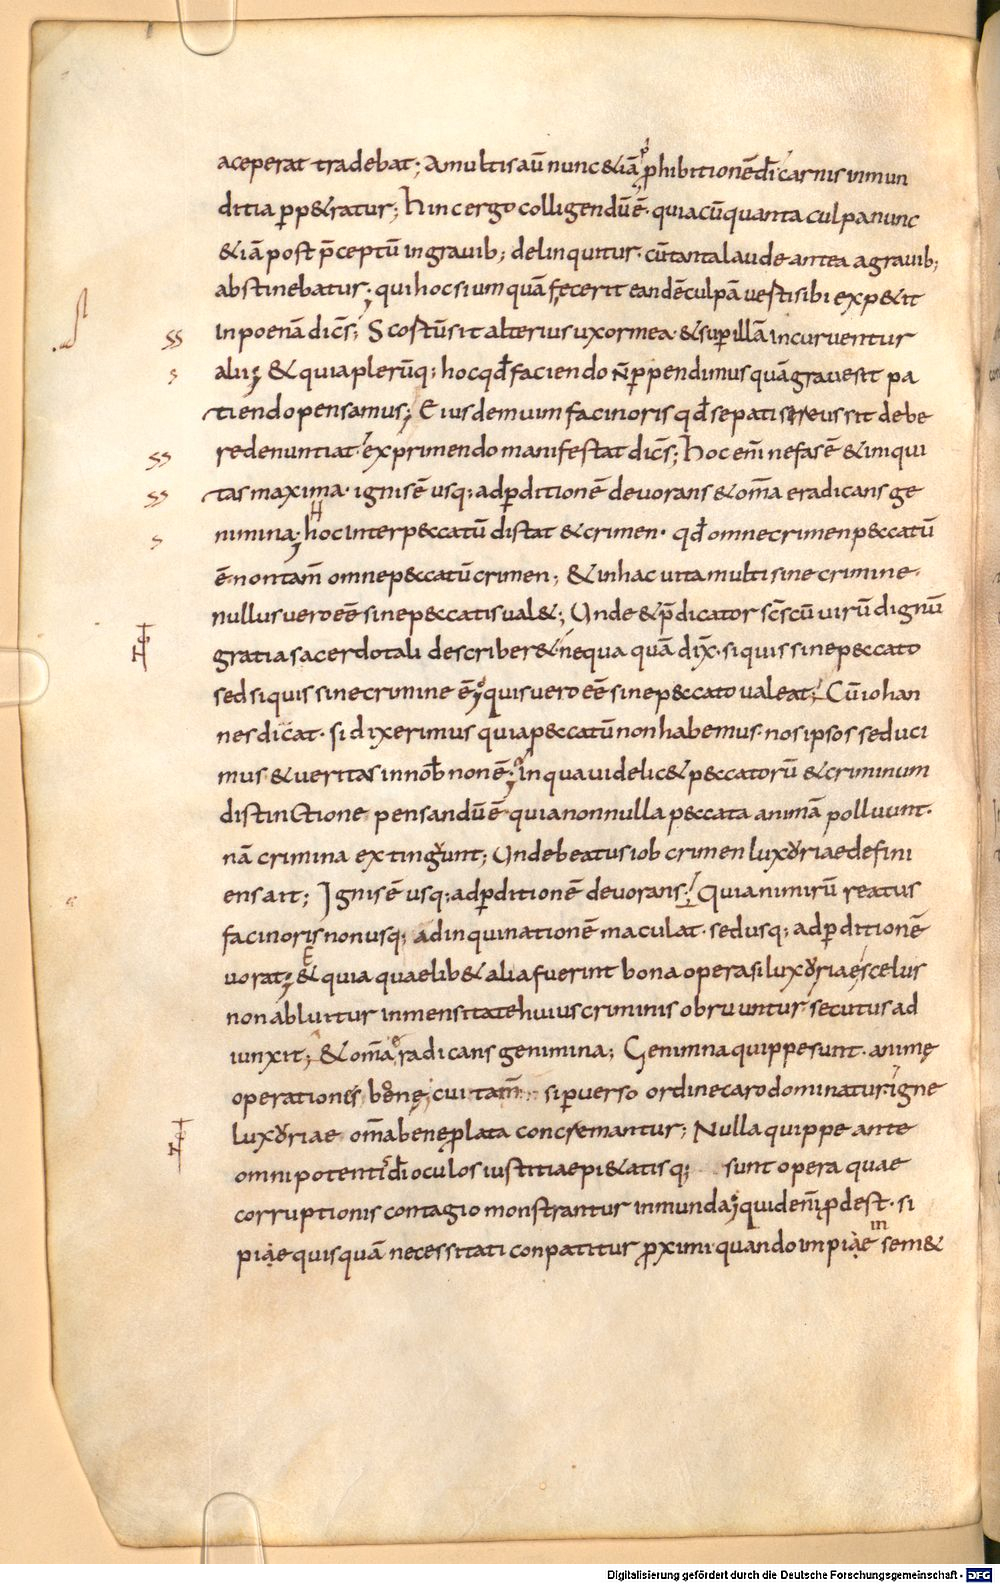 aceperat tradebat; Amultis aū nunc &iā ꝓhibitionē dī carnis inmun
ditia ꝑp&ratur; hinc ergo colligendū ē· quia cū quanta culpa nunc
&iā post p̄ceptū in grauib; delinquitur· cū tanta laude antea a grauib;
abstinebatur; qui hoc si umquā fecerit eandē culpā uesti sibi exp&it
in poenā dicēs; Scostū sit alterius uxor mea· & sup illā incuruentur
alii; & quia plerūq; hoc qđ faciendo n̄ ꝑpendimus quā graue sit pa
tiendo pensamus; Eiusdem uim facinoris qđ se patisse reus sit debe
re denuntiat exprimendo manifestat dicēs; hoc eni nefas ē & iniqui
tas maxima· ignis ē usq; ad ꝑditionē deuorans & om̄a eradicans ge
nimina; hoc inter peccatū distat & crimen· qđ omne crimen peccatū
ē· non tam̄ omne peccatū crimen; & in hac uita multi sine crimine·
nullus uero eē sine peccatis ual&; Unde & p̄dicator sc̄s cū uirū dignū
gratia sacerdotali describer& nequaquā dix̄· siquis sine peccato
sed siquis sine crimine ē; quis uero eē sine peccato ualeat; Cū iohan
nes dicat· si dixerimus quia peccatū non habemus· nos ipsos seduci
mus· & ueritas in nob̄ non ē; In qua uidelic& peccatorū & criminum
distinctione pensandū ē quia nonnulla peccata animā polluunt·
nā crimina extingunt; Unde beatus iob crimen luxoriae defini
ens ait; Ignis ē usq; ad ꝑditionē deuorans; Quia nimirū reatus
facinoris non usq; ad inquinationē maculat· sed usq; ad ꝑditionē
uorat; & quia quaelib& alia fuerint bona opera si luxoriae scelus
non abluitur inmensitate huius criminis obruuntur secutus ad
iunxit; & om̄a radicans genimina; Genimna quippe sunt· animę
operationes bonę cui tam̄ si ꝑuerso ordine caro dominatur· igne
luxoriae om̄a bene ꝓlata concremantur; Nulla quippe ante
omnipotenti dī oculos iustitiae pi&atisq; sunt opera quae
corruptionis contagio monstrantur inmunda; quid eni ꝓdest· si
piae quisquā necessitati conpatitur ꝓximi quando impiae in sem&
H
in
ss
s
ss
ss
s
Digitalisierung gefördert durch die Deutsche Forschungsgemeinschaft - DFG